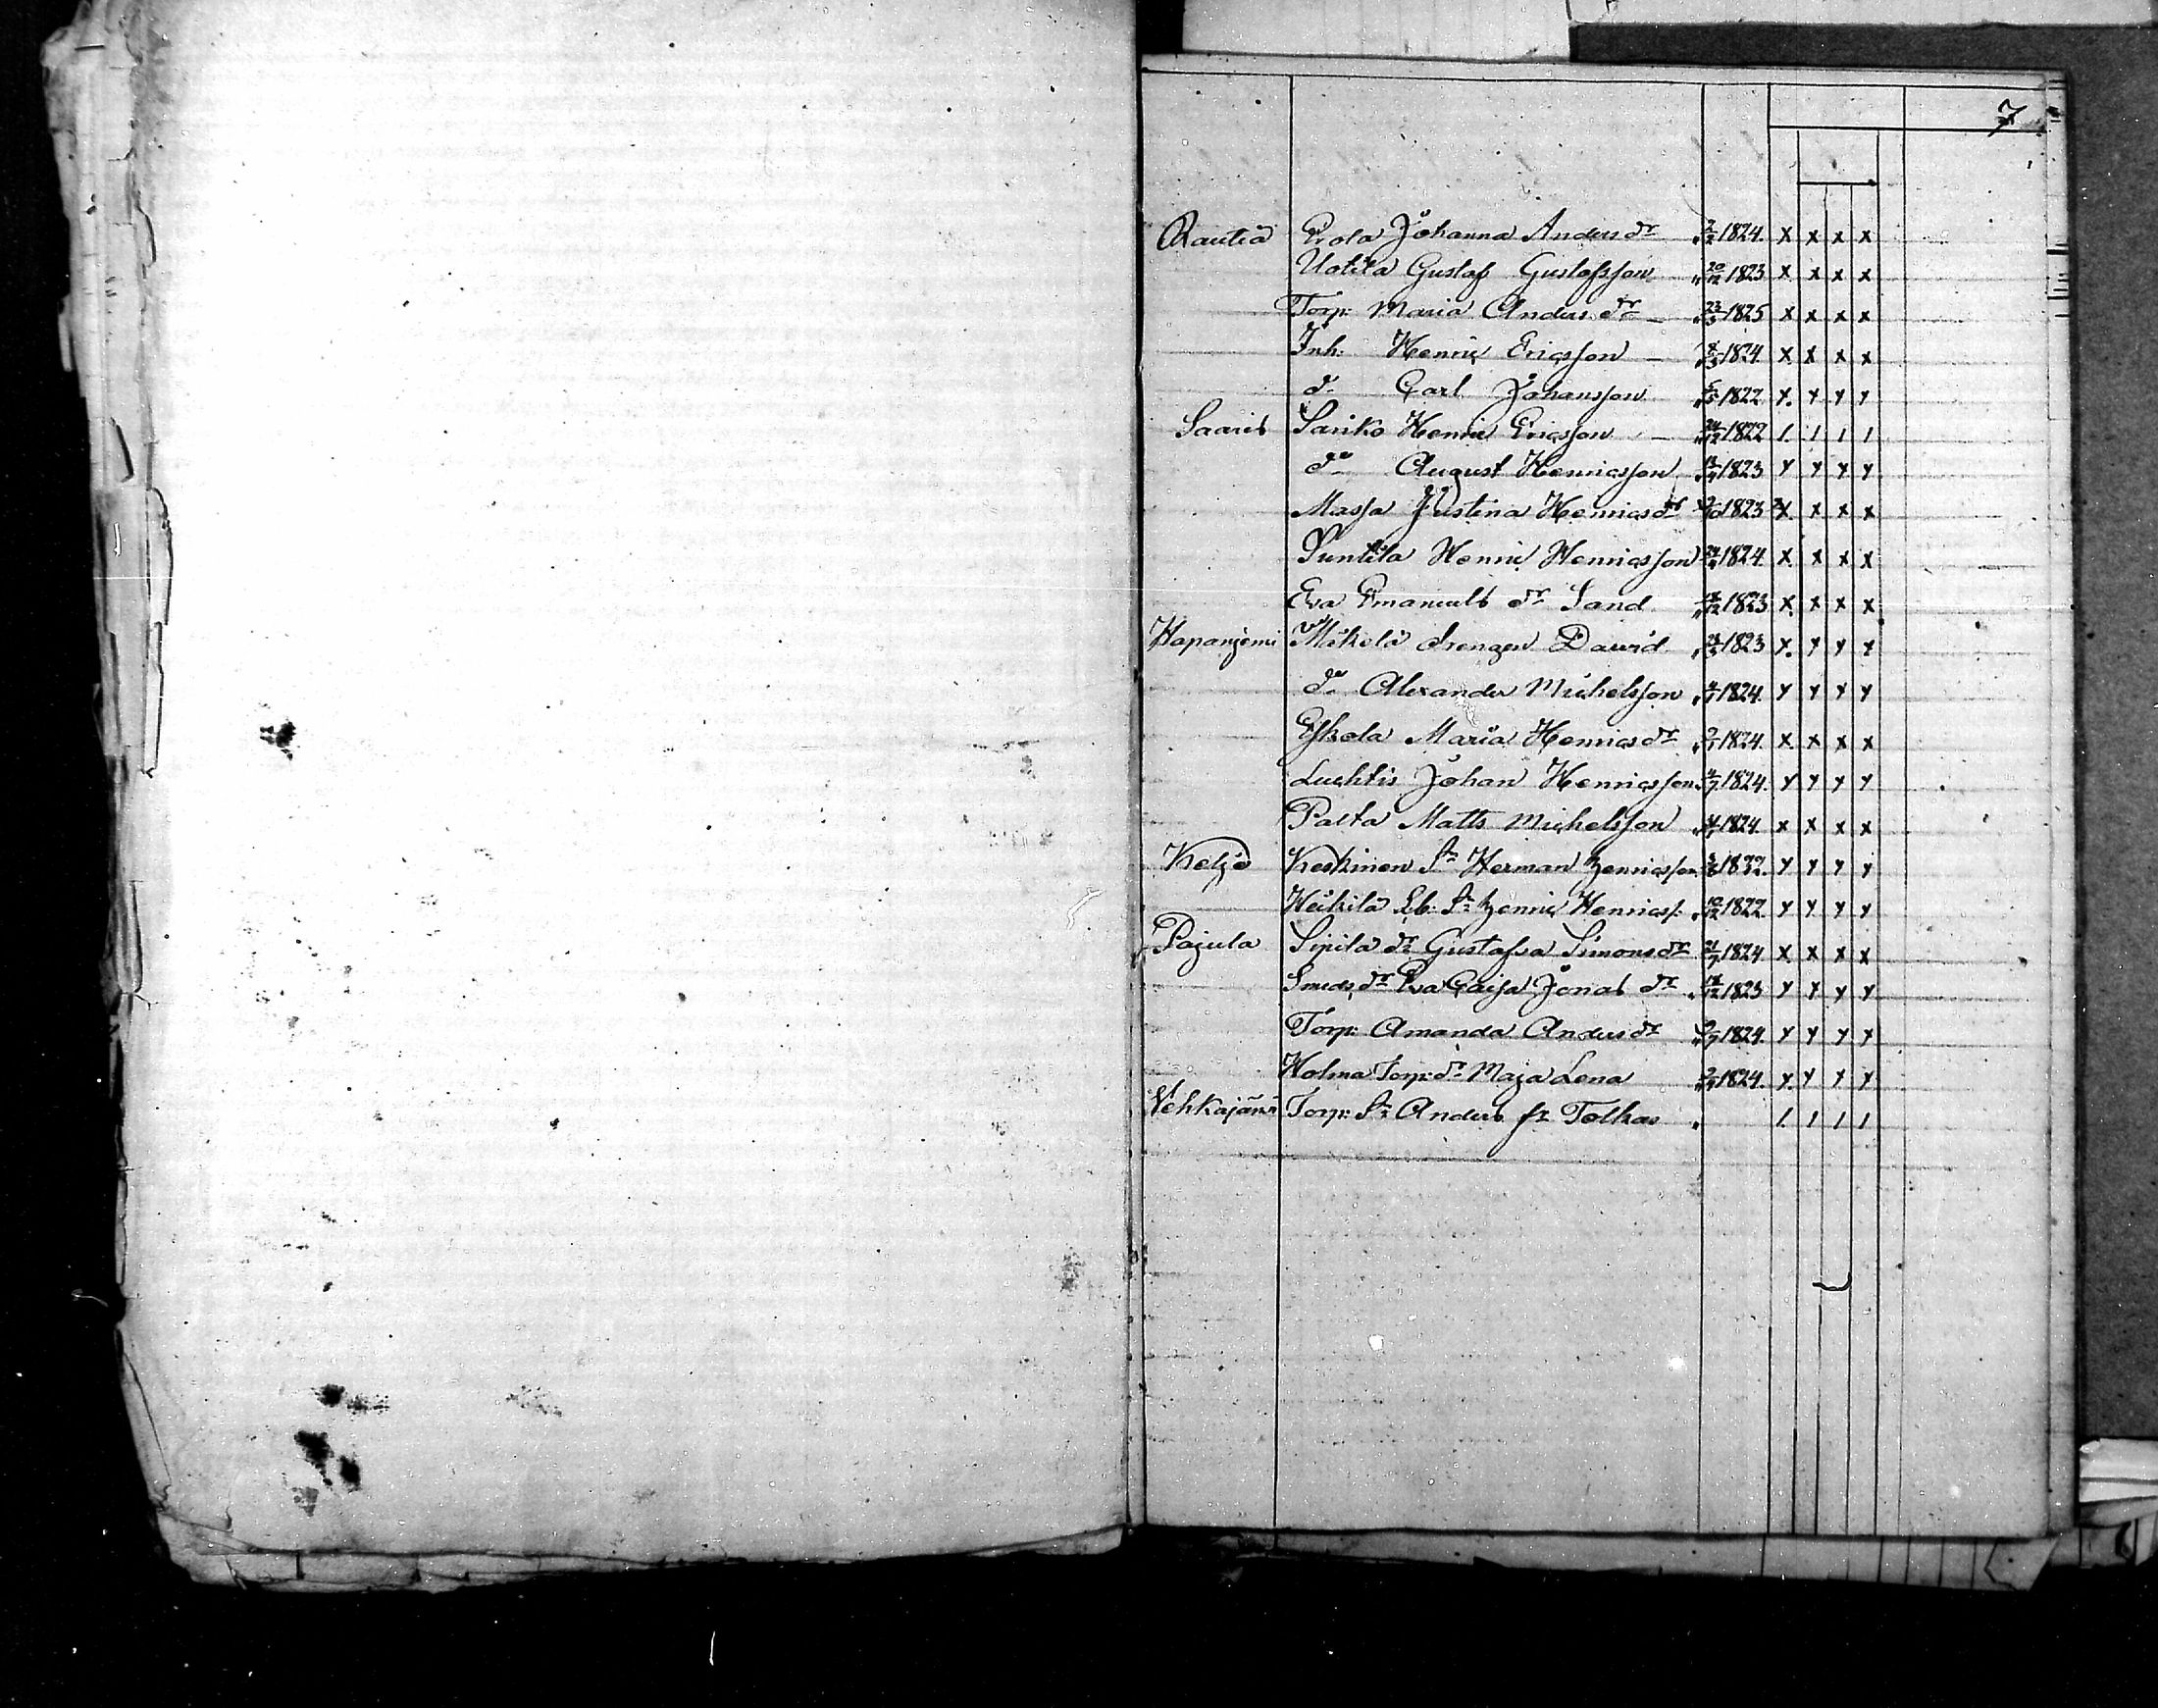 7
Rautia Erola Johanna Anders dr 2/2 1824. x x x x
Uotila Gustaf Gustafsson 20/12 1823 x x x x
Torp: Maria Anders dr 23/3 1825 x x x x
Inh. Henric Ericsson 1824. x x x x
do Carl Johansson 1822 y y y y
Saaris Sariko Henric Ericsson 24/12 1822 / / / /
do August Henricsson 1823 y y y y
Massa Justina Henricsdr 1823 x x x x
Punkila Henric Henricsson 1824. x x x x
Eva Emanuels dr Sand 1823 x x x x
Hapaniemi Mikola drengen David 1823 y y y y
do Alexander Michelsson 1824. y y y y
Eskola Maria Henricsdr 2/1 1824. x x x x
Luchtis Johan Henricsson 4/7 1824. y y y y
Palta Matts Michelsson 1824. x x x x
Keljo Keskinen Sn Herman Henricsson 1832. y y y y
Heikilä Eb. Sn Henric Henricss. 10/12 1822. y y y y
Pajula Sipilä dr Gustafva Simonsdr 21/7 1824 x x x x
Smeds dr Eva Caisa Jonas dr 1823 y y y y
Torp: Amanda Anders dr 1824. y y y y
Holma Torp: dr Maja Lena 1824. y y y y
Vehkajärvi Torp: Sn Anders fr Tolkas / / / /